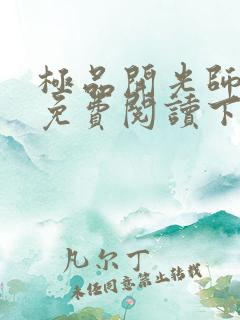 極品開光師
免費閱讀下
凡尔丁
未经同意禁止转载